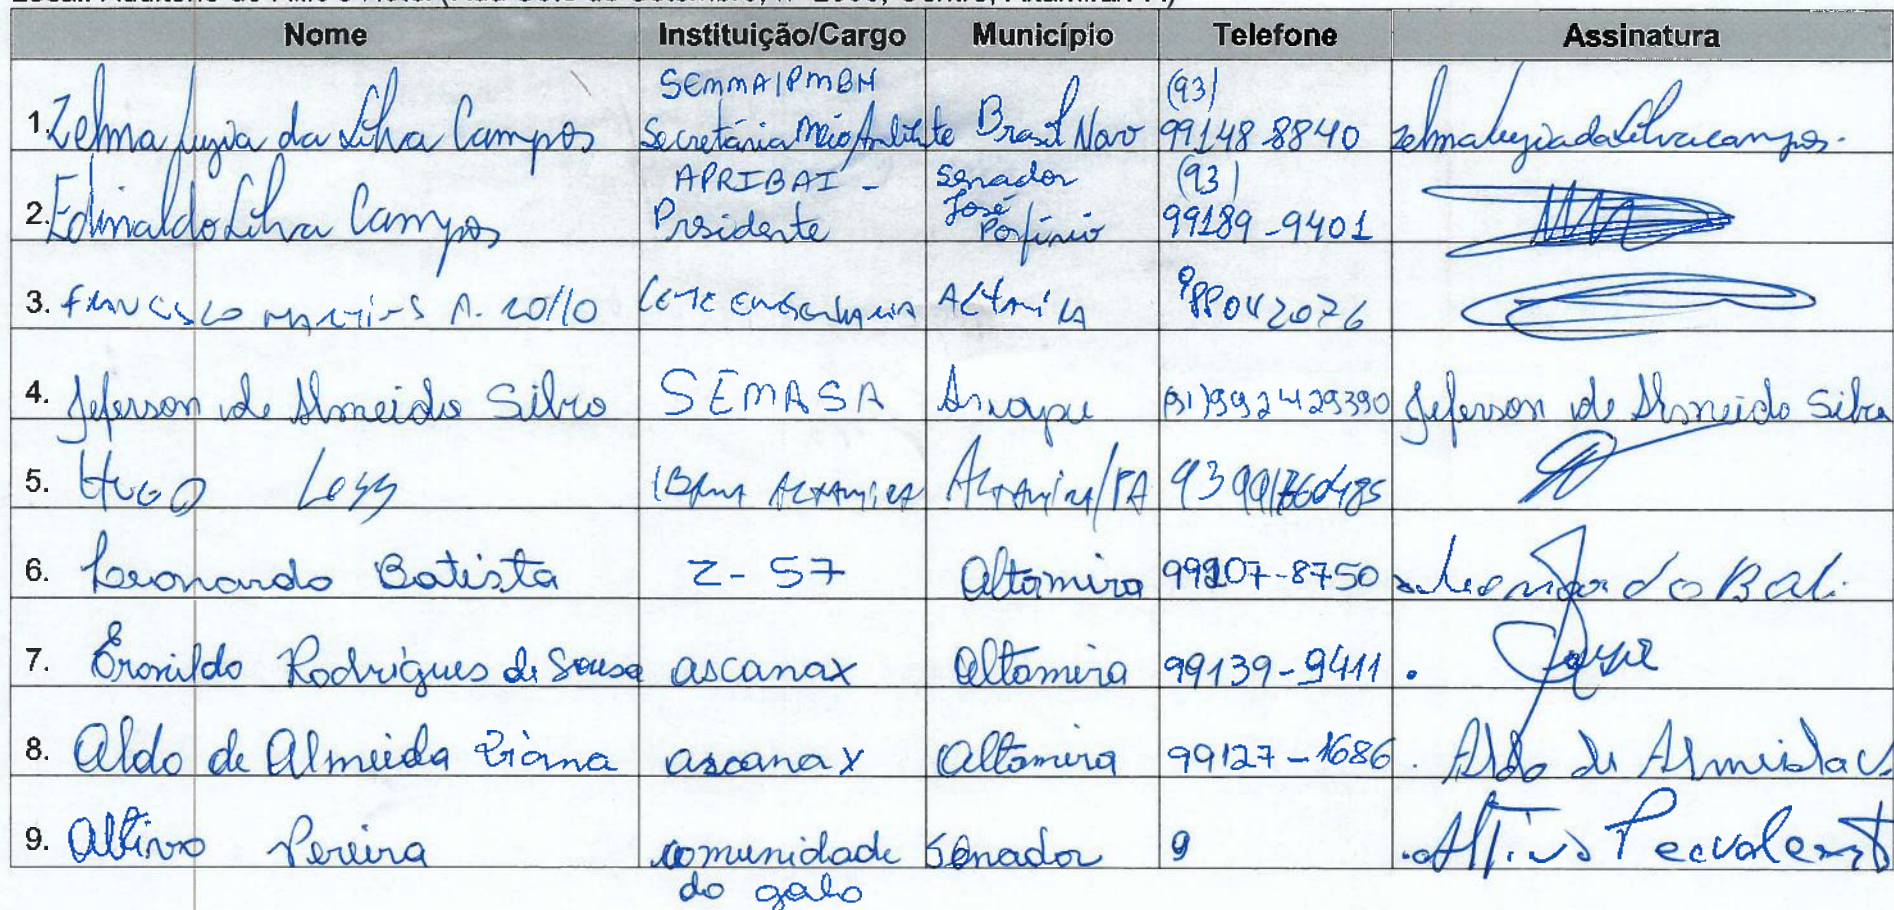 Nome Instituição/Cargo Município Telefone Assinatura
1. Zelma Luzia da Silva Campos SEMMA/PMBN Secretária Meio Ambiente Brasil Novo (93) 99148-8840 zelmaluziadasilvacampos.
2. Edinaldo Silva Campos APRIBAI - Presidente Senador José Porfírio (93) 99189-9401
3. Altamira 988042076
4. Jeferson de Almeida Silva SEMASA Jeferson de Almeida Silva
5. Hugo Loss IBAMA ALTAMIRA ALTAMIRA/PA
6. Leonardo Batista Z-57 Altamira 99207-8750 Leonardo Bat.
7. Eronildo Rodrigues de Sousa ascanax Altamira 99139-9411
8. Aldo de Almeida Viana ascanax Altamira 99127-1686 Aldo de Almeida
9. Altivo Pereira comunidade do galo Senador 9 Altivo